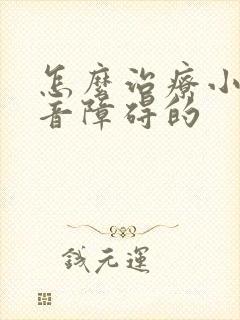 怎麼治療小
音障碍的
錢元運